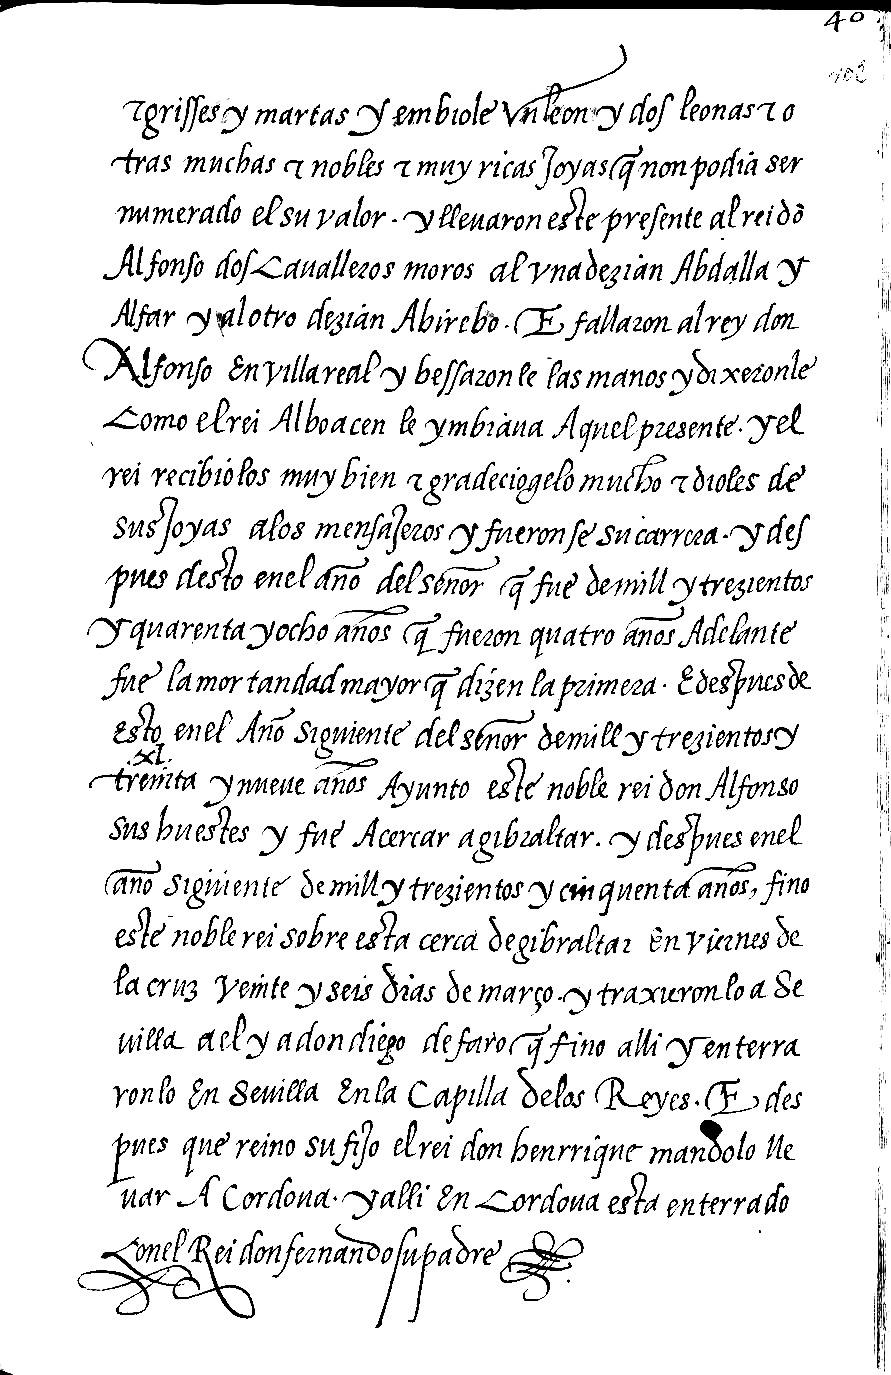 40
102
⁊ grisses y martas y embiole vn leon y dos leonas ⁊ o
tras muchas ⁊ nobles ⁊ muy ricas joyas q̃ non podia ser
numerado el su valor. y lleuaron este presente al rei dõ
Alfonso dos Caualleros moros al vna dezian Abdalla y
Alfar y al otro dezian Abirebo. E fallaron al rey don
Alfonso En villa real y bessaronle las manos y dixeronle
Como el rei Alboacen le ymbiaua Aquel presente. y el
rei recibiolos muy bien ⁊ gradeciogelo mucho ⁊ dioles de
sus joyas alos mensajeros y fueronse su carrera. y des
pues desto enel año del señor q̃ fue de mill y trezientos
y quarenta y ocho años q̃ fueron quatro años Adelante
fue la mortandad mayor q̃ dizen la primera. E despues de
Esto enel Año siguiente del señor de mill y trezientos y
.xl.
treinta y nueue años Ayunto este noble rei don Alfonso
sus huestes y fue Acercar a gibraltar. y despues enel
año siguiente de mill y trezientos y cinquenta años, fino
este noble rei sobre esta cerca de gibraltar En viernes de
la cruz veinte y seis dias de março. y traxieronlo a Se
uilla a el y a don diego de faro q̃ fino alli y enterra
ronlo En Seuilla En la Capilla delos Reyes. E des
pues que reino su fijo el rei don henrrique mandolo lle
uar A Cordoua. y alli En Cordoua esta enterrado
Con el Rei don fernando su padre